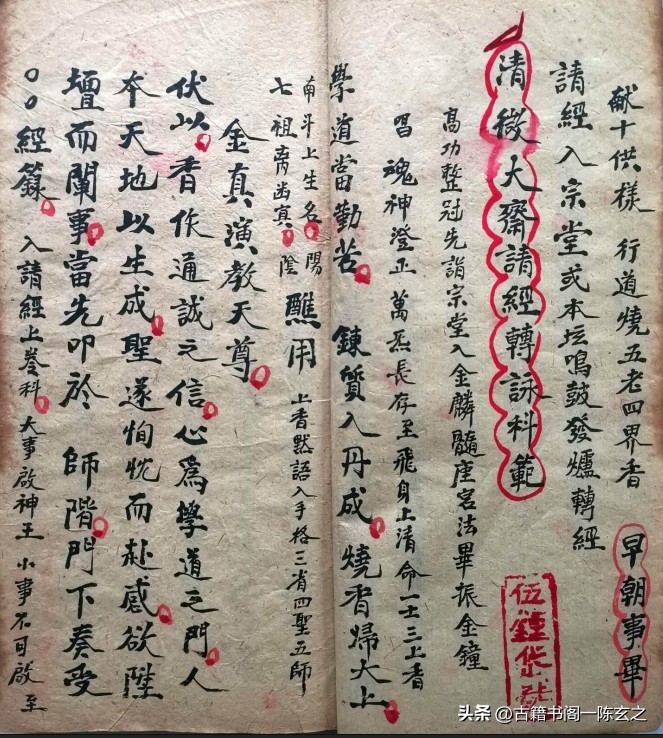 献十供樣　行道燒五老四界香　早朝事畢
請經入宗堂或本坛鳴鼓發爐轉經
清微大齋請經轉詠科範
高功整冠先詣宗堂入金麟髓座宻法畢振金鐘
唱　魂神澄正　萬炁長存至飛身上清命一士三上香
學道當勤苦　鍊質入丹成　燒香歸太上
南斗上生名　陽　醮用　上香黙語入手格三省四聖五師
七祖离幽真　陰
金真演教天尊
伏以香作通誠之信心爲學道之門人
夲天地以生成聖遂恂忱而赴感欲陞
壇而闡事當先叩於　師階門下奏受
〇〇經籙　入請經上卷科大事啟神王　小事不可啟至
伍鍾
头条 @古籍书阁一陈玄之